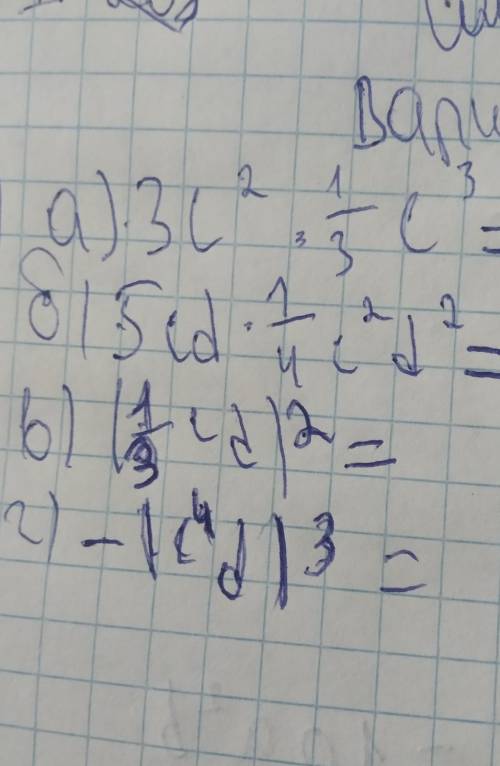 а) 3c² · 1/3 c³ =
б) 5cd · 1/4 c²d² =
в) (1/3 cd)² =
г) -(c⁴d)³ =